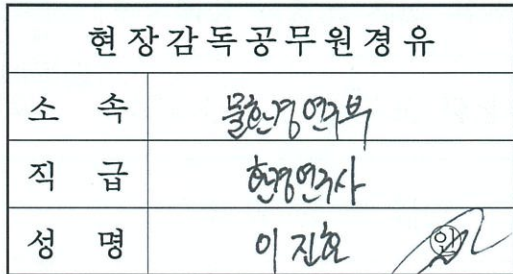 현장감독공무원경유
소 속 물환경연구부
직 급 환경연구사
성 명 이진호 인